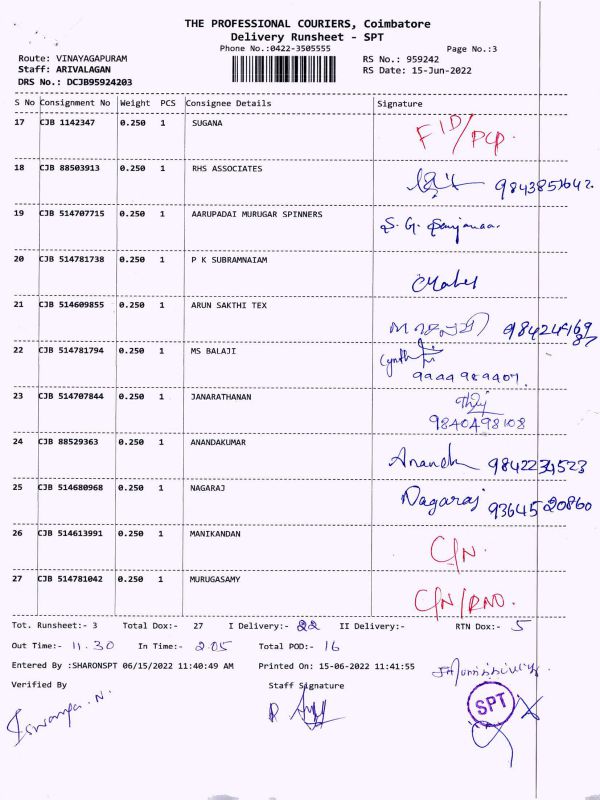 THE PROFESSIONAL COURIERS, Coimbatore
Delivery Runsheet - SPT
Phone No.:0422-3505555 Page No.:3
Route: VINAYAGAPURAM RS No.: 959242
Staff: ARIVALAGAN RS Date: 15-Jun-2022
DRS No.: DCJB95924203
S No Consignment No Weight PCS Consignee Details Signature
17 CJB 1142347 0.250 1 SUGANA
18 CJB 88503913 0.250 1 RHS ASSOCIATES 9843853642.
19 CJB 514707715 0.250 1 AARUPADAI MURUGAR SPINNERS
20 CJB 514781738 0.250 1 P K SUBRAMNAIAM
21 CJB 514609855 0.250 1 ARUN SAKTHI TEX
22 CJB 514781794 0.250 1 MS BALAJI
9444989407.
23 CJB 514707844 0.250 1 JANARATHANAN
9840498108
24 CJB 88529363 0.250 1 ANANDAKUMAR Anandh 9842234523
25 CJB 514680968 0.250 1 NAGARAJ Nagaraj 9364520860
26 CJB 514613991 0.250 1 MANIKANDAN C/N.
27 CJB 514781042 0.250 1 MURUGASAMY C/N/RNO.
Tot. Runsheet:- 3 Total Dox:- 27 I Delivery:- 22 II Delivery:- RTN Dox:- 5
Out Time:- 11.30 In Time:- 2.05 Total POD:- 16
Entered By :SHARONSPT 06/15/2022 11:40:49 AM Printed On: 15-06-2022 11:41:55
Verified By Staff Signature
SPT